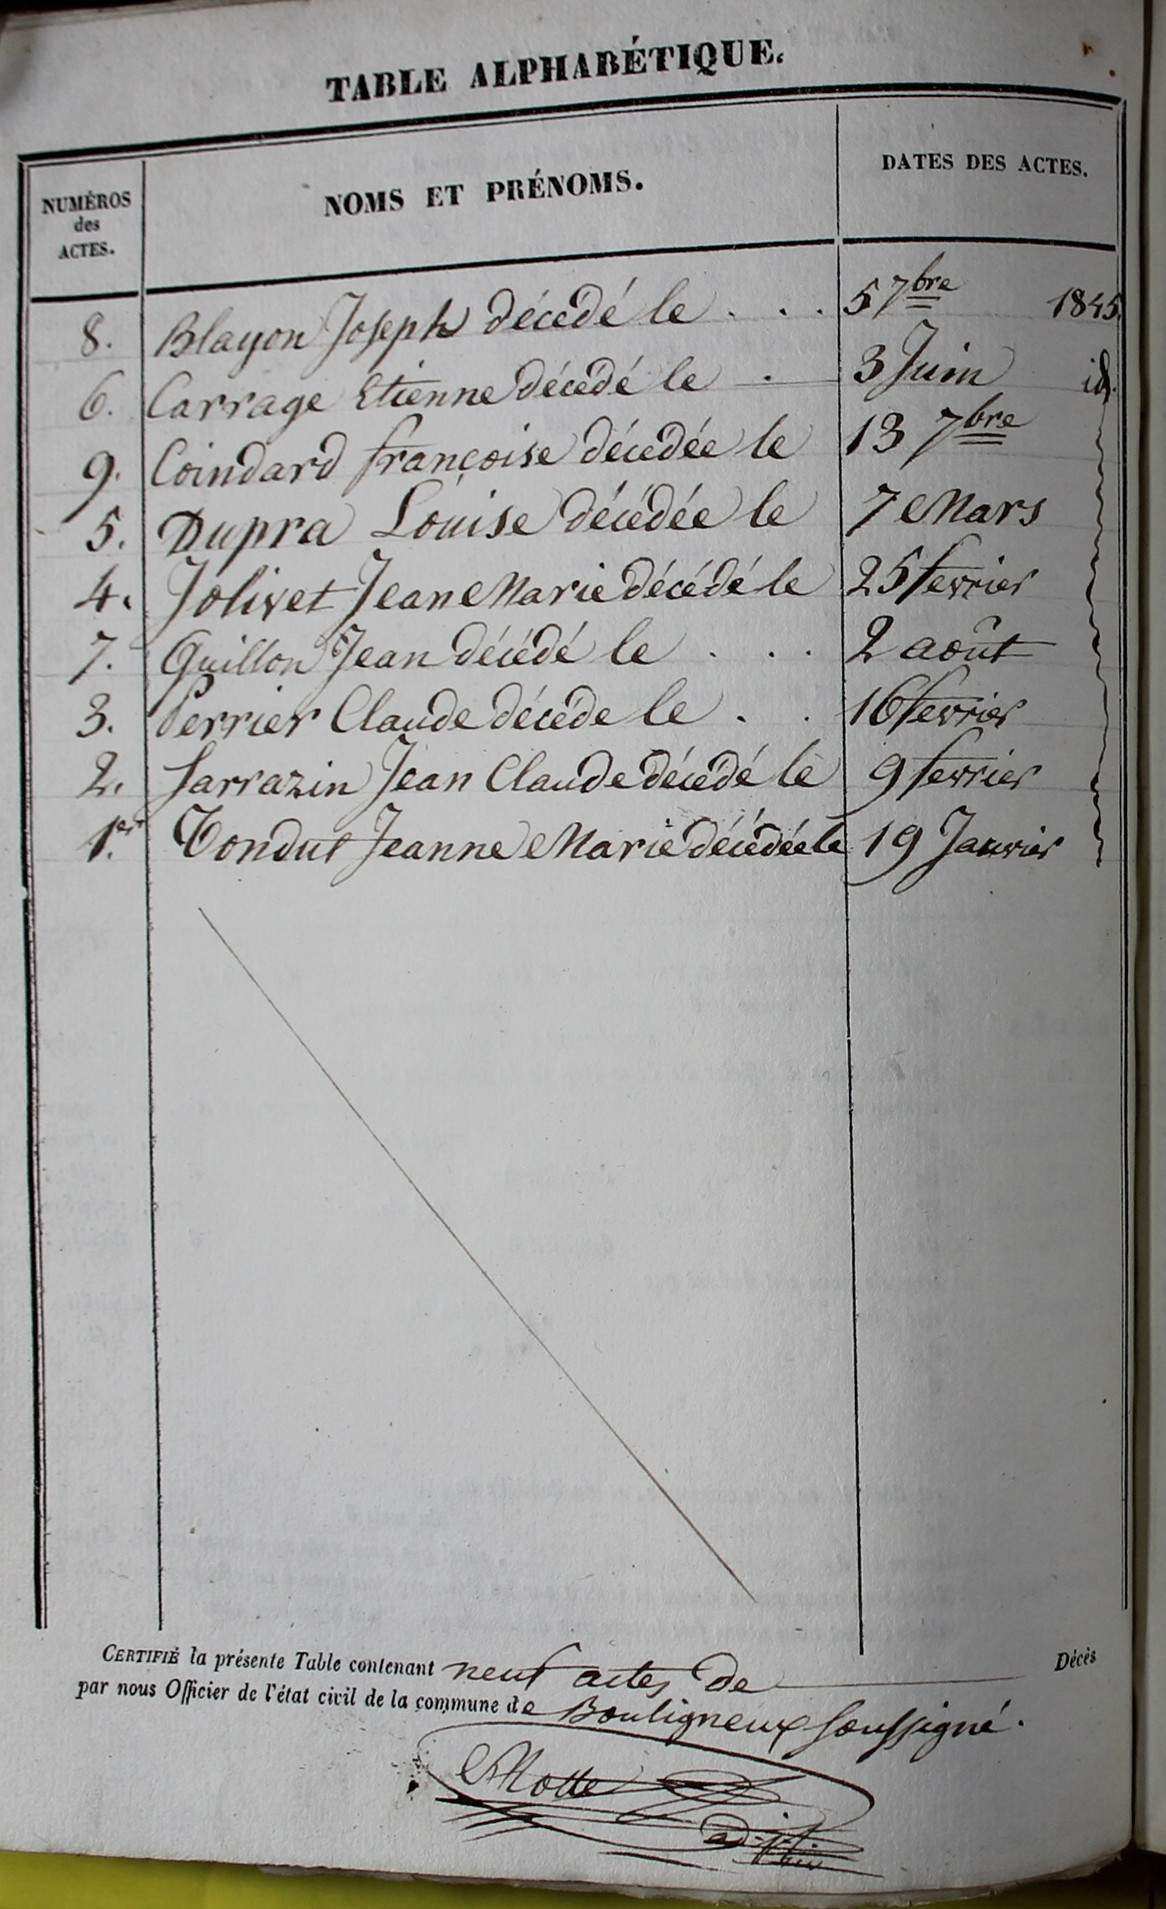 TABLE ALPHABÉTIQUE.
NUMÉROS des ACTES. NOMS ET PRÉNOMS. DATES DES ACTES.
8. Blayon Joseph décedé le . . . 5 7bre 1845.
6. Carrage Etienne décédé le . 3 Juin id.
9. Coindard françoise décedée le 13 7bre
5. Dupra Louise décédée le 7 Mars
4. Jolivet Jean Marie décédé le 25 fevrier
7. Guillon Jean décédé le . . . 2 août
3. Perrier Claude décede le . . 16 fevrier
2. Sarrazin Jean Claude décédé le 9 fevrier
1er. Tondut Jeanne Marie décédée le 19 Janvier
CERTIFIÉ la présente Table contenant neuf actes de Décès
par nous Officier de l'état civil de la commune de Bouligneux Soussigné.
Motte